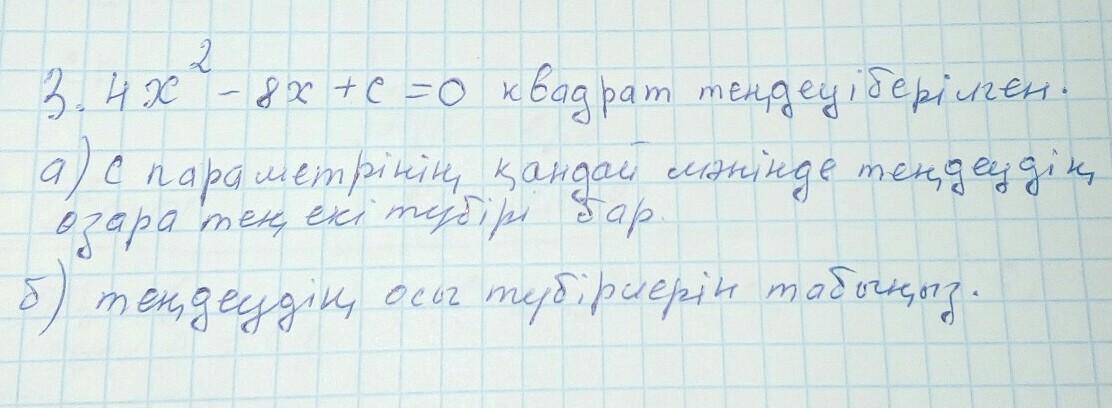 3. 4x² - 8x + c = 0 квадрат теңдеуі берілген.
а) c параметрінің қандай мәнінде теңдеудің
өзара тең екі түбірі бар.
б) теңдеудің осы түбірлерін табыңыз.